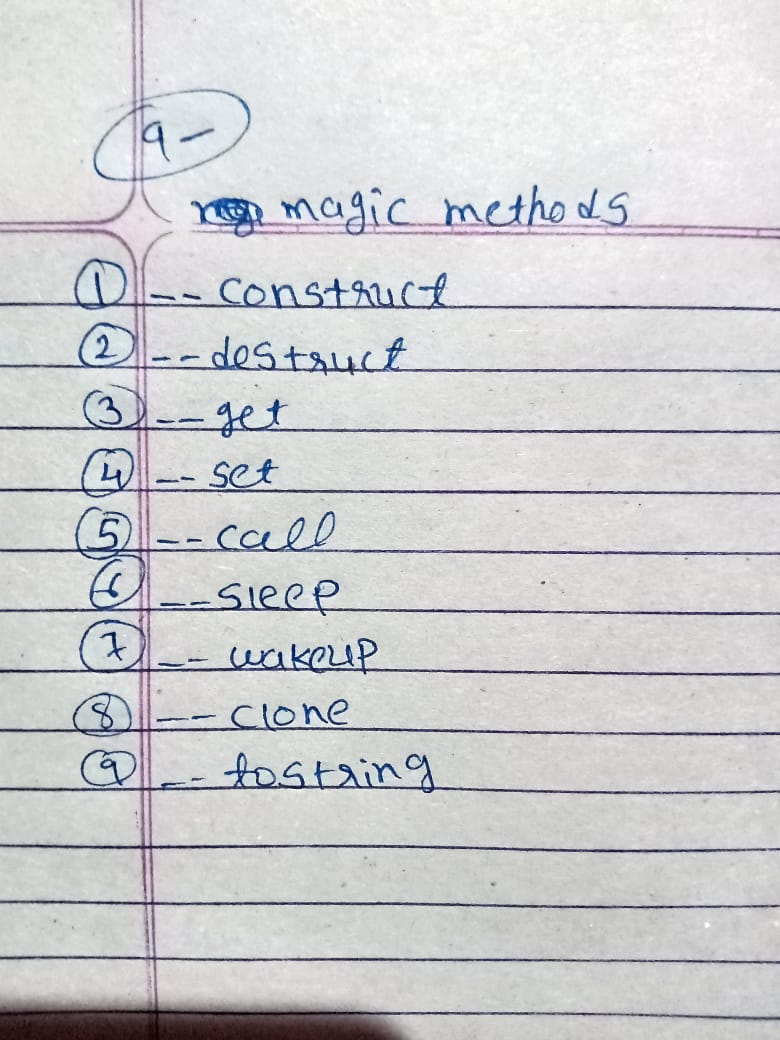 9-
magic methods
1 -- construct
2 -- destruct
3 -- get
4 -- set
5 -- call
6 -- sleep
7 -- wakeup
8 -- clone
9 -- tostring